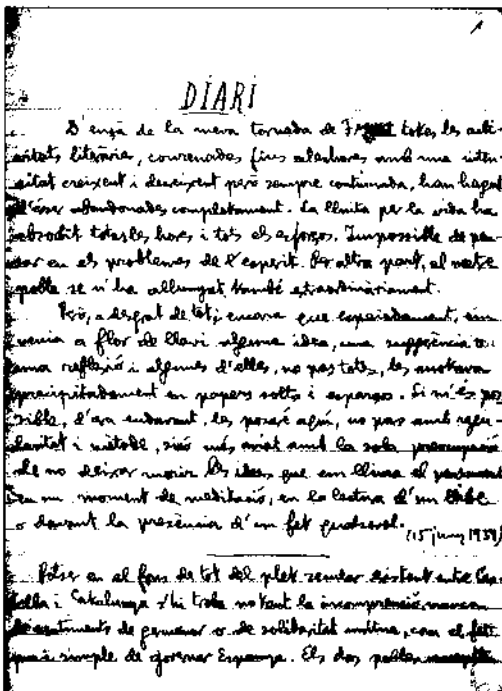 DIARI
D'ençà de la meva tornada de totes les acti-
vitats literàries, conreuades fins aleshores amb una inten-
sitat creixent i decreixent però sempre continuada, han hagut
d'ésser abandonades completament. La lluita per la vida ha
absorbit totes les hores i tots els esforços. Impossible de pen-
sar en els problemes de l'esperit. Per altra part, el nostre
poble se n'ha allunyat també extraordinàriament.
Però, a desgrat de tot, encara que espaiadament, em
venia a flor de llavi alguna idea, una suggerència o
una reflexió i algunes d'elles, no pas totes, les anotava
precipitadament en papers solts i esparsos. Si m'és pos-
sible, d'ara endavant, les posaré aquí, no pas amb regu-
laritat i mètode, sinó més aviat amb la sola preocupació
de no deixar morir les idees que em lliura el pensament
en un moment de meditació, en la lectura d'un llibre
o davant la presència d'un fet qualsevol.
(15 juny 1939)
Potser en el fons de tot del plet secular existent entre Cas-
tella i Catalunya s'hi troba no tant la incomprensió, manca
de sentiments de germanor o de solidaritat mútua, com el fet
pur i simple de governar Espanya. Els dos pobles